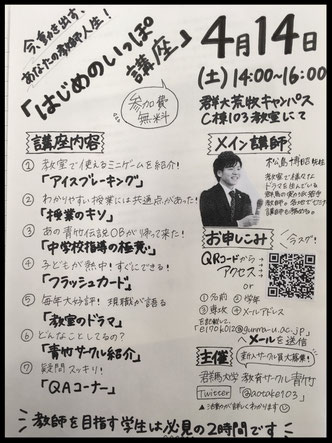 今、動き出す、
あなたの教師人生!
「はじめのいっぽ
講座」
参加費
無料
4月14日
(土)14:00~16:00
群大荒牧キャンパス
C棟103教室にて
講座内容
① 教室で使えるミニゲームを紹介!
「アイスブレーキング」
② わかりやすい授業には共通点があった!
「授業のキソ」
③ あの青竹伝説OBが帰って来た!
「中学校指導の極意」
④ 子どもが熱中!すぐにできる!
「フラッシュカード」
⑤ 毎年大好評!現職が語る
「教室のドラマ」
⑥ どんなことしてるの?
「青竹サークル紹介」
⑦ 疑問スッキリ!
「QAコーナー」
メイン講師
松島博昭
教室で様々な
ドラマを生んでいる
お申しこみ
今スグ!
QRコードから
アクセス→
or
①名前 ②学年
③専攻 ④メールアドレス
を記載して、
e170k012@gunma-u.ac.jp
へメールを送信
主催
新入サークル員大募集!
群馬大学 教育サークル青竹
Twitter @aotake103
▲活動の様子が詳しくわかります
教師を目指す学生は必見の2時間です